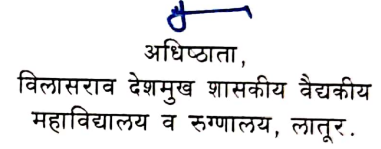 अधिष्ठाता,
विलासराव देशमुख शासकीय वैद्यकीय
महाविद्यालय व रुग्णालय, लातूर.